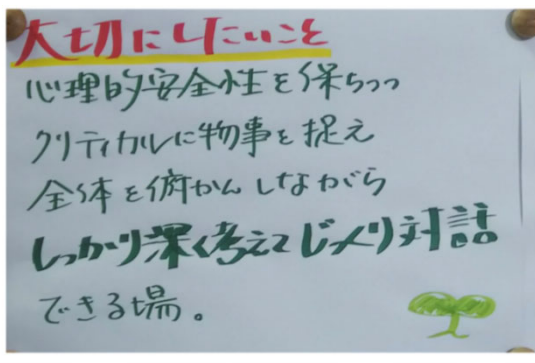 大切にしたいこと
心理的安全性を保ちつつ
クリティカルに物事を捉え
全体を俯かんしながら
しっかり深く考えてじっくり対話
できる場。